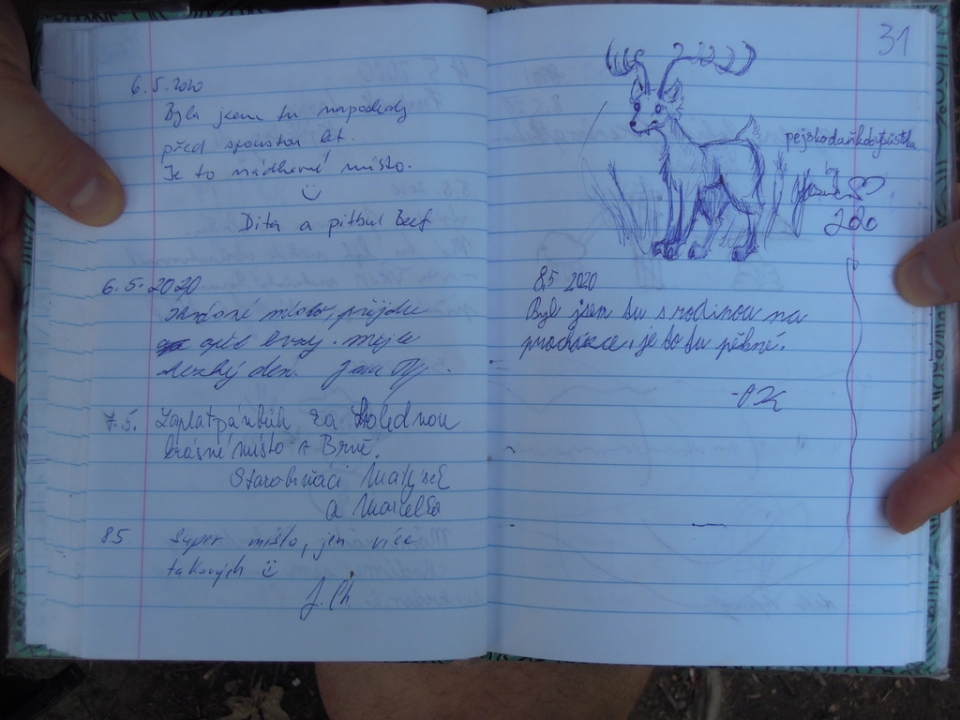 6.5.2020
Byla jsem tu naposledy
před spoustou let.
Je to nádherné místo.
Dita a pitbul Beef
6.5.2020
Krásné místo, přijdu
opět brzy. Mějte
hezký den. Jana
7.5. Zaplať pánbůh za shlédnou
krásné místo v Brně.
Starobrňáci Matýsek
a Marcelka
8.5. Super místo, jen více
takových
J. Ch
31
by
2020
8.5 2020
Byli jsem tu s rodinou na
procházce, je to tu pěkné.
-OK